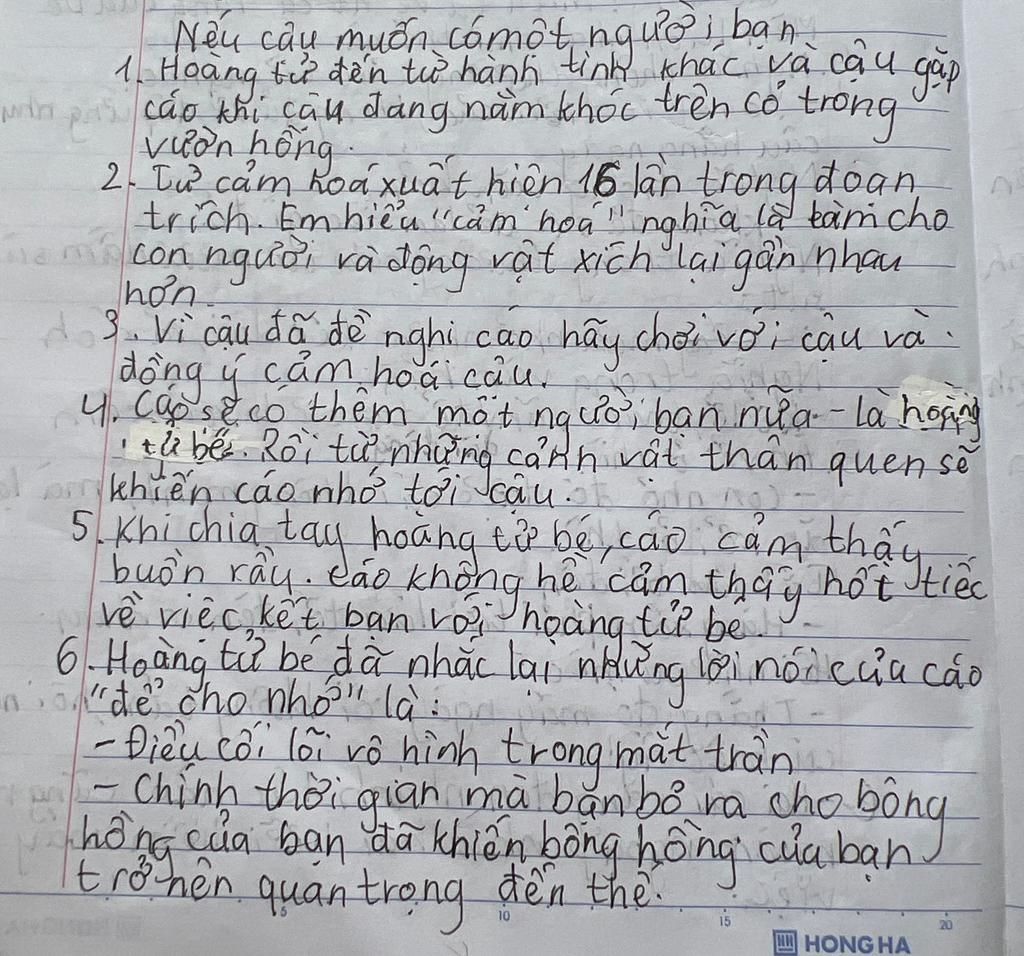 Nếu cậu muốn có một người bạn
1. Hoàng tử đến từ hành tinh khác và cậu gặp
cáo khi cậu đang nằm khóc trên cỏ trong
vườn hồng.
2. Từ cảm hoá xuất hiện 16 lần trong đoạn
trích. Em hiểu "cảm hoá" nghĩa là làm cho
con người và động vật xích lại gần nhau
hơn.
3. Vì cậu đã đề nghị cáo hãy chơi với cậu và
đồng ý cảm hoá cậu.
4. Cáo sẽ có thêm một người bạn nữa - là hoàng
tử bé. Rồi từ những cảnh vật thân quen sẽ
khiến cáo nhớ tới cậu.
5. Khi chia tay hoàng tử bé, cáo cảm thấy
buồn rầu. Cáo không hề cảm thấy hốt tiếc
về việc kết bạn với hoàng tử bé.
6. Hoàng tử bé đã nhắc lại những lời nói của cáo
"để cho nhớ" là:
- Điều cối lõi vô hình trong mắt trần
- Chính thời gian mà bạn bỏ ra cho bông
hồng của bạn đã khiến bông hồng của bạn
trở nên quan trọng đến thế.
5 10 15 20
HONG HA